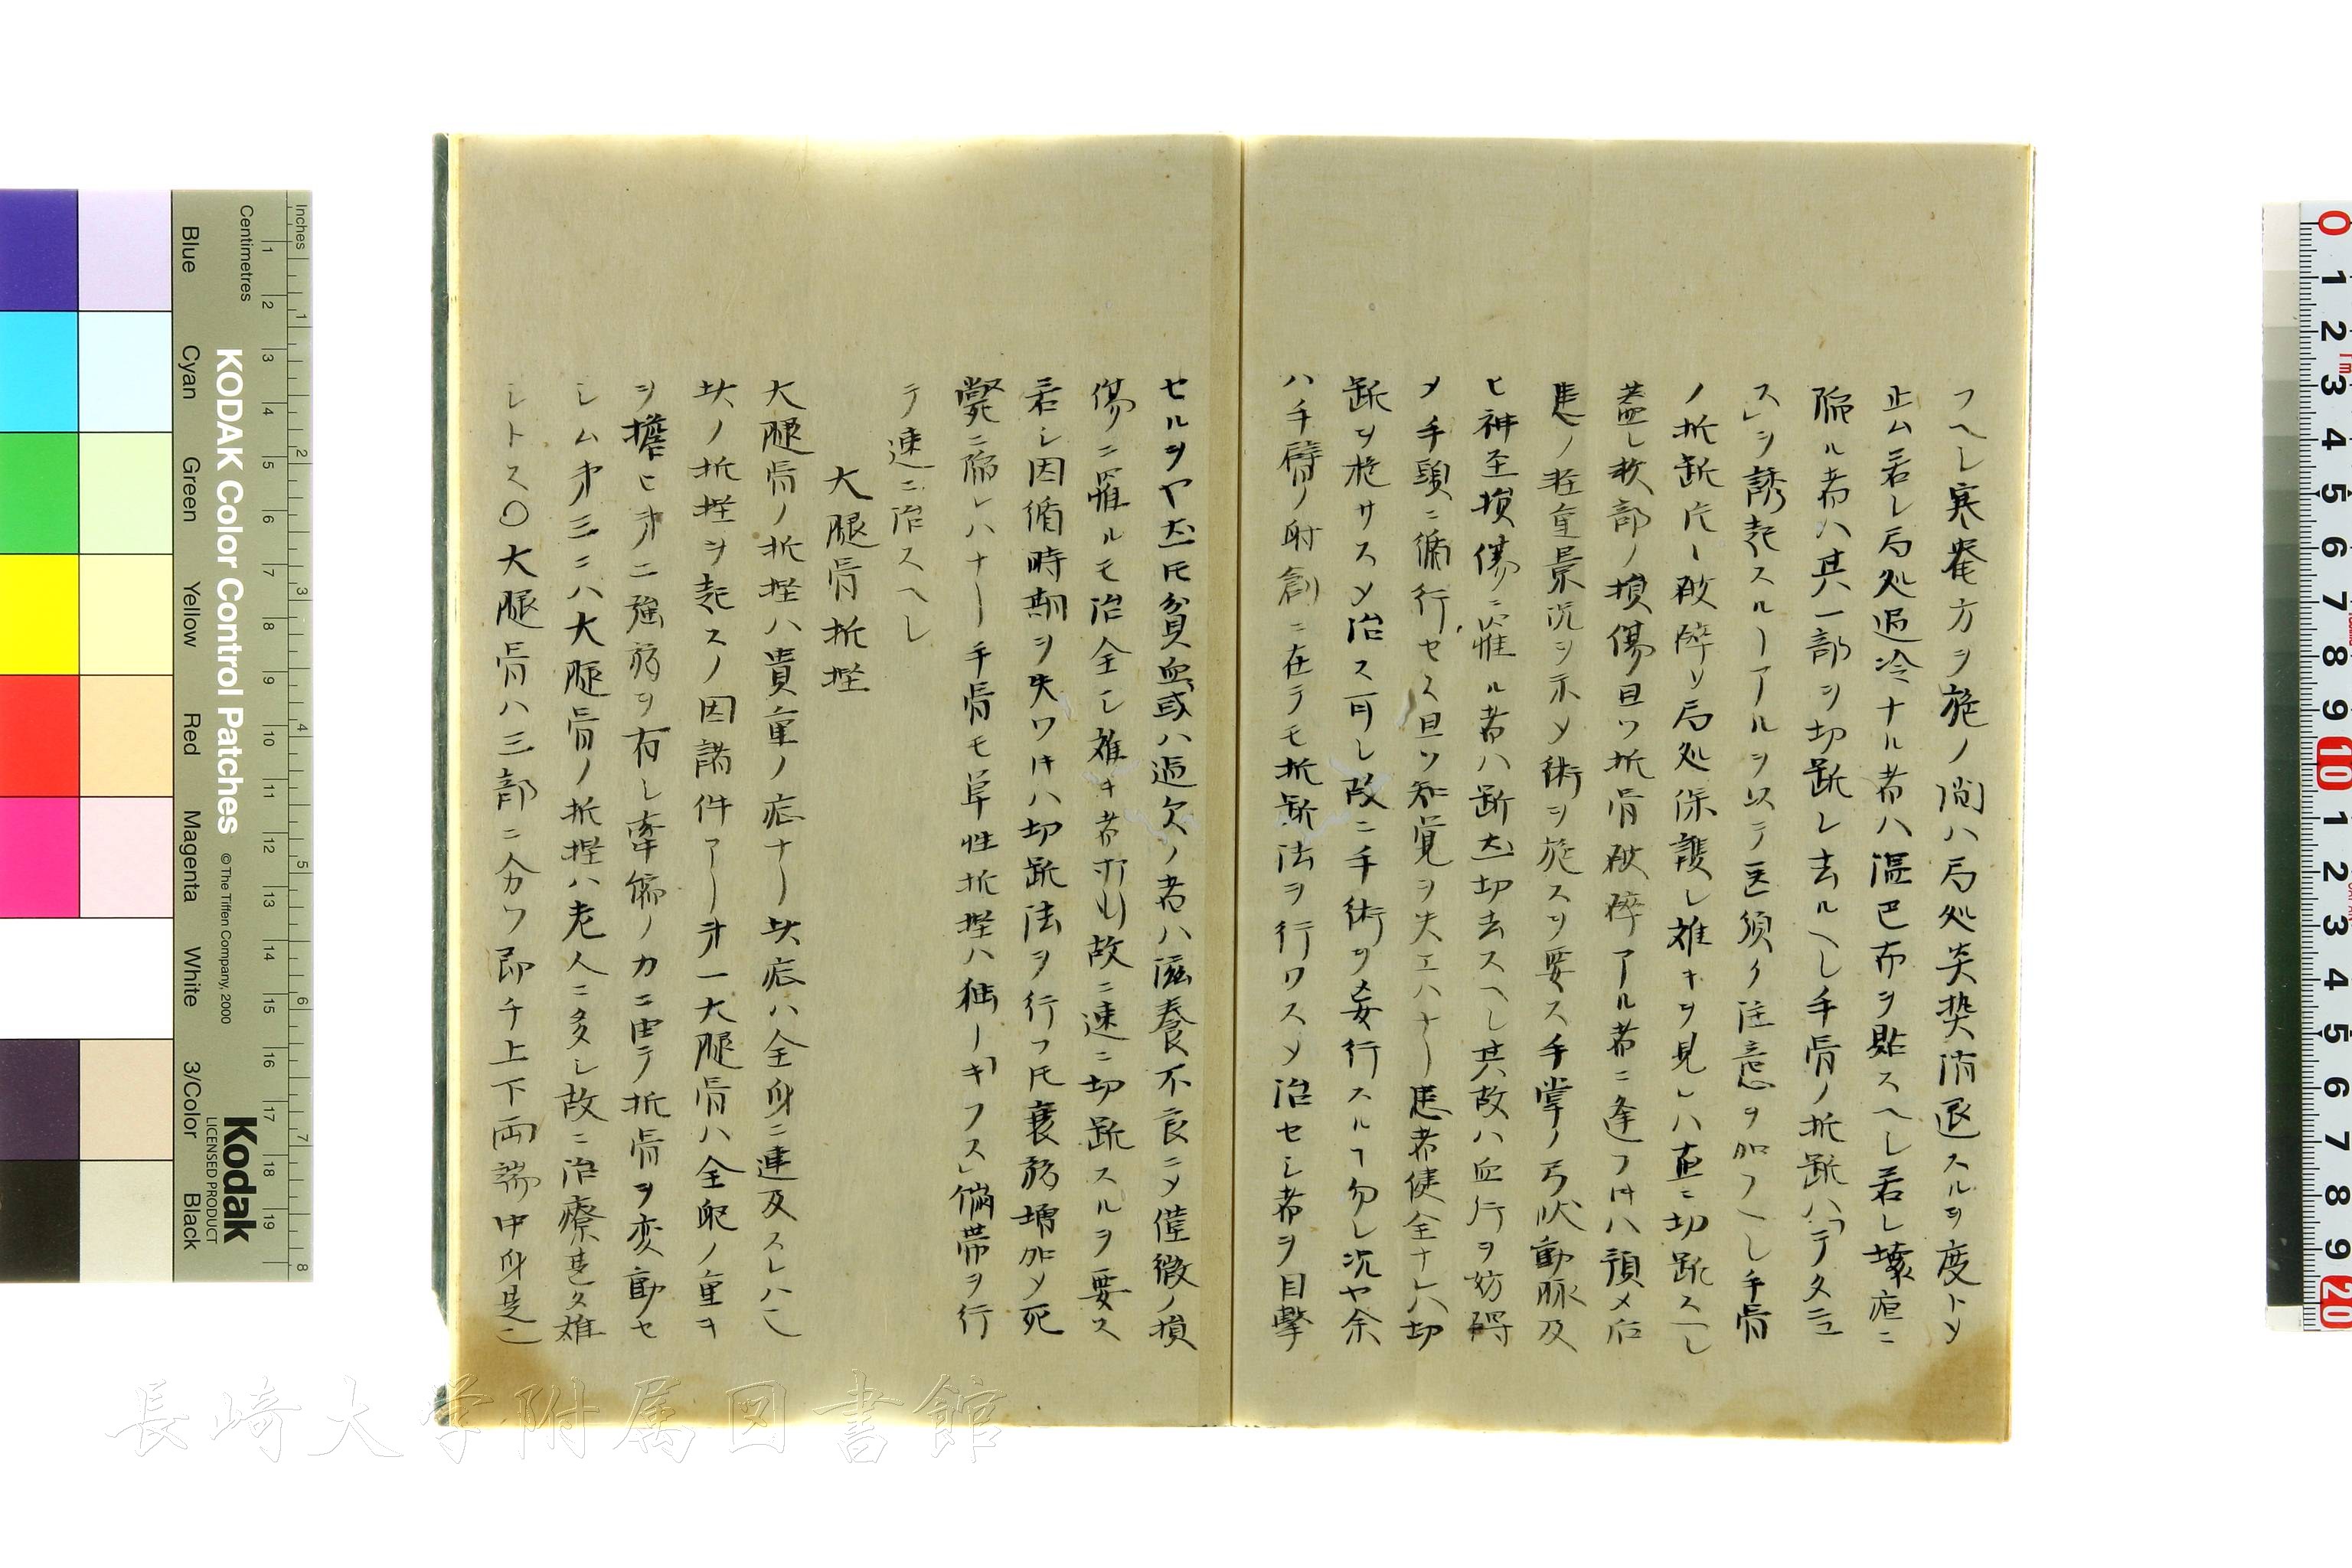 フヘし寒罨方ヲ施ノ間ハ局処炎㷔消退スルヲ度トメ
止ム若し局処過冷ナル者ハ温巴布ヲ貼スヘし若し壊疽ニ
陥ル者ハ其一部ヲ切断し去ルヘし手骨ノ折断ハ「テタニュ
ス」ヲ誘起スルヿアルヲ以テ医須ク注意ヲ加フヘし手骨
ノ折断片ヽ破砕ソ局処保護し難キヲ見レハ直ニ切断スヘし
蓋し軟部ノ損傷且ツ折骨破砕アル者ニ逢フ片ハ預メ后
患ノ軽重景况ヲ示メ術ヲ施スヲ要ス手掌ノ弓状動脉及
ヒ神至損傷ニ罹ル者ハ断然切去スヘし其故ハ血行ヲ妨碍
メ手頭ニ循行セス且ツ知覚ヲ失エハナリ患者健全ナレハ切
断ヲ施サスメ治ス可し故ニ手術ヲ妄行スルヿ勿し况ヤ余
ハ手臂ノ射創ニ在テモ折断法ヲ行ワスメ治セし者ヲ目撃
セルヲヤ然𪜈貧血或ハ過欠ノ者ハ滋養不良ニメ僅微ノ損
傷ニ罹ルモ治全シ難キ者有リ故ニ速ニ切断スルヲ要ス
若シ因循時期ヲ失ワ片ハ切断法ヲ行フ𪜈衰弱増加メ死
斃ニ陥レハナリ手骨モ単性折挫ハ独リ「ギフス」繃帯ヲ行
テ速ニ治スヘし
大腿骨折挫
大腿骨ノ折挫ハ貴重ノ症ナリ此症ハ全身ニ連及スレハ也
此ノ折挫ヲ起スノ因諸件アリ才一大腿骨ハ全躰ノ重ヲ
ヲ擔ヒ才二強弱ヲ有し牽縮ノカニ由テ折骨ヲ変動セ
シム才三ニハ大腿骨ノ折挫ハ老人ニ多し故ニ治療甚タ難
シトス〇大腿骨ハ三部ニ分ワ即チ上下両端中身是也
Inches
Centimetres
KODAK Color Control Patches
© The Tiffen Company, 2000
Kodak
LICENSED PRODUCT
Blue
Cyan
Green
Yellow
Red
Magenta
White
3/Color
Black
長崎大学附属図書館